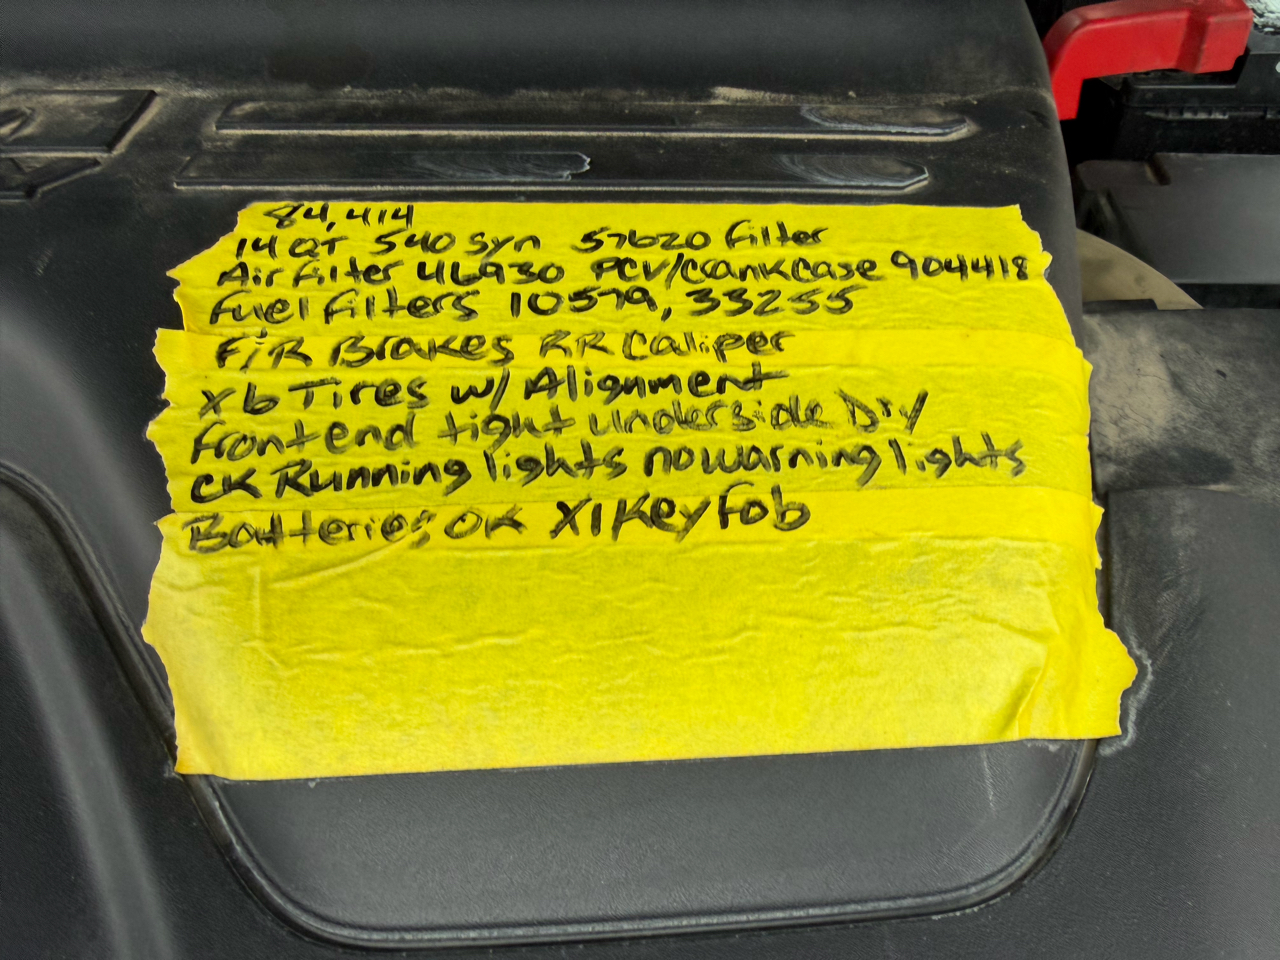 84,414
14 QT 540 syn 57620 filter
Air filter 46930 PCV/crankcase 904418
fuel filters 10579, 33255
F/R Brakes RR Caliper
x6 Tires w/ Alignment
frontend tight underside Dry
CK Running lights no warning lights
Batteries OK X1 Key Fob